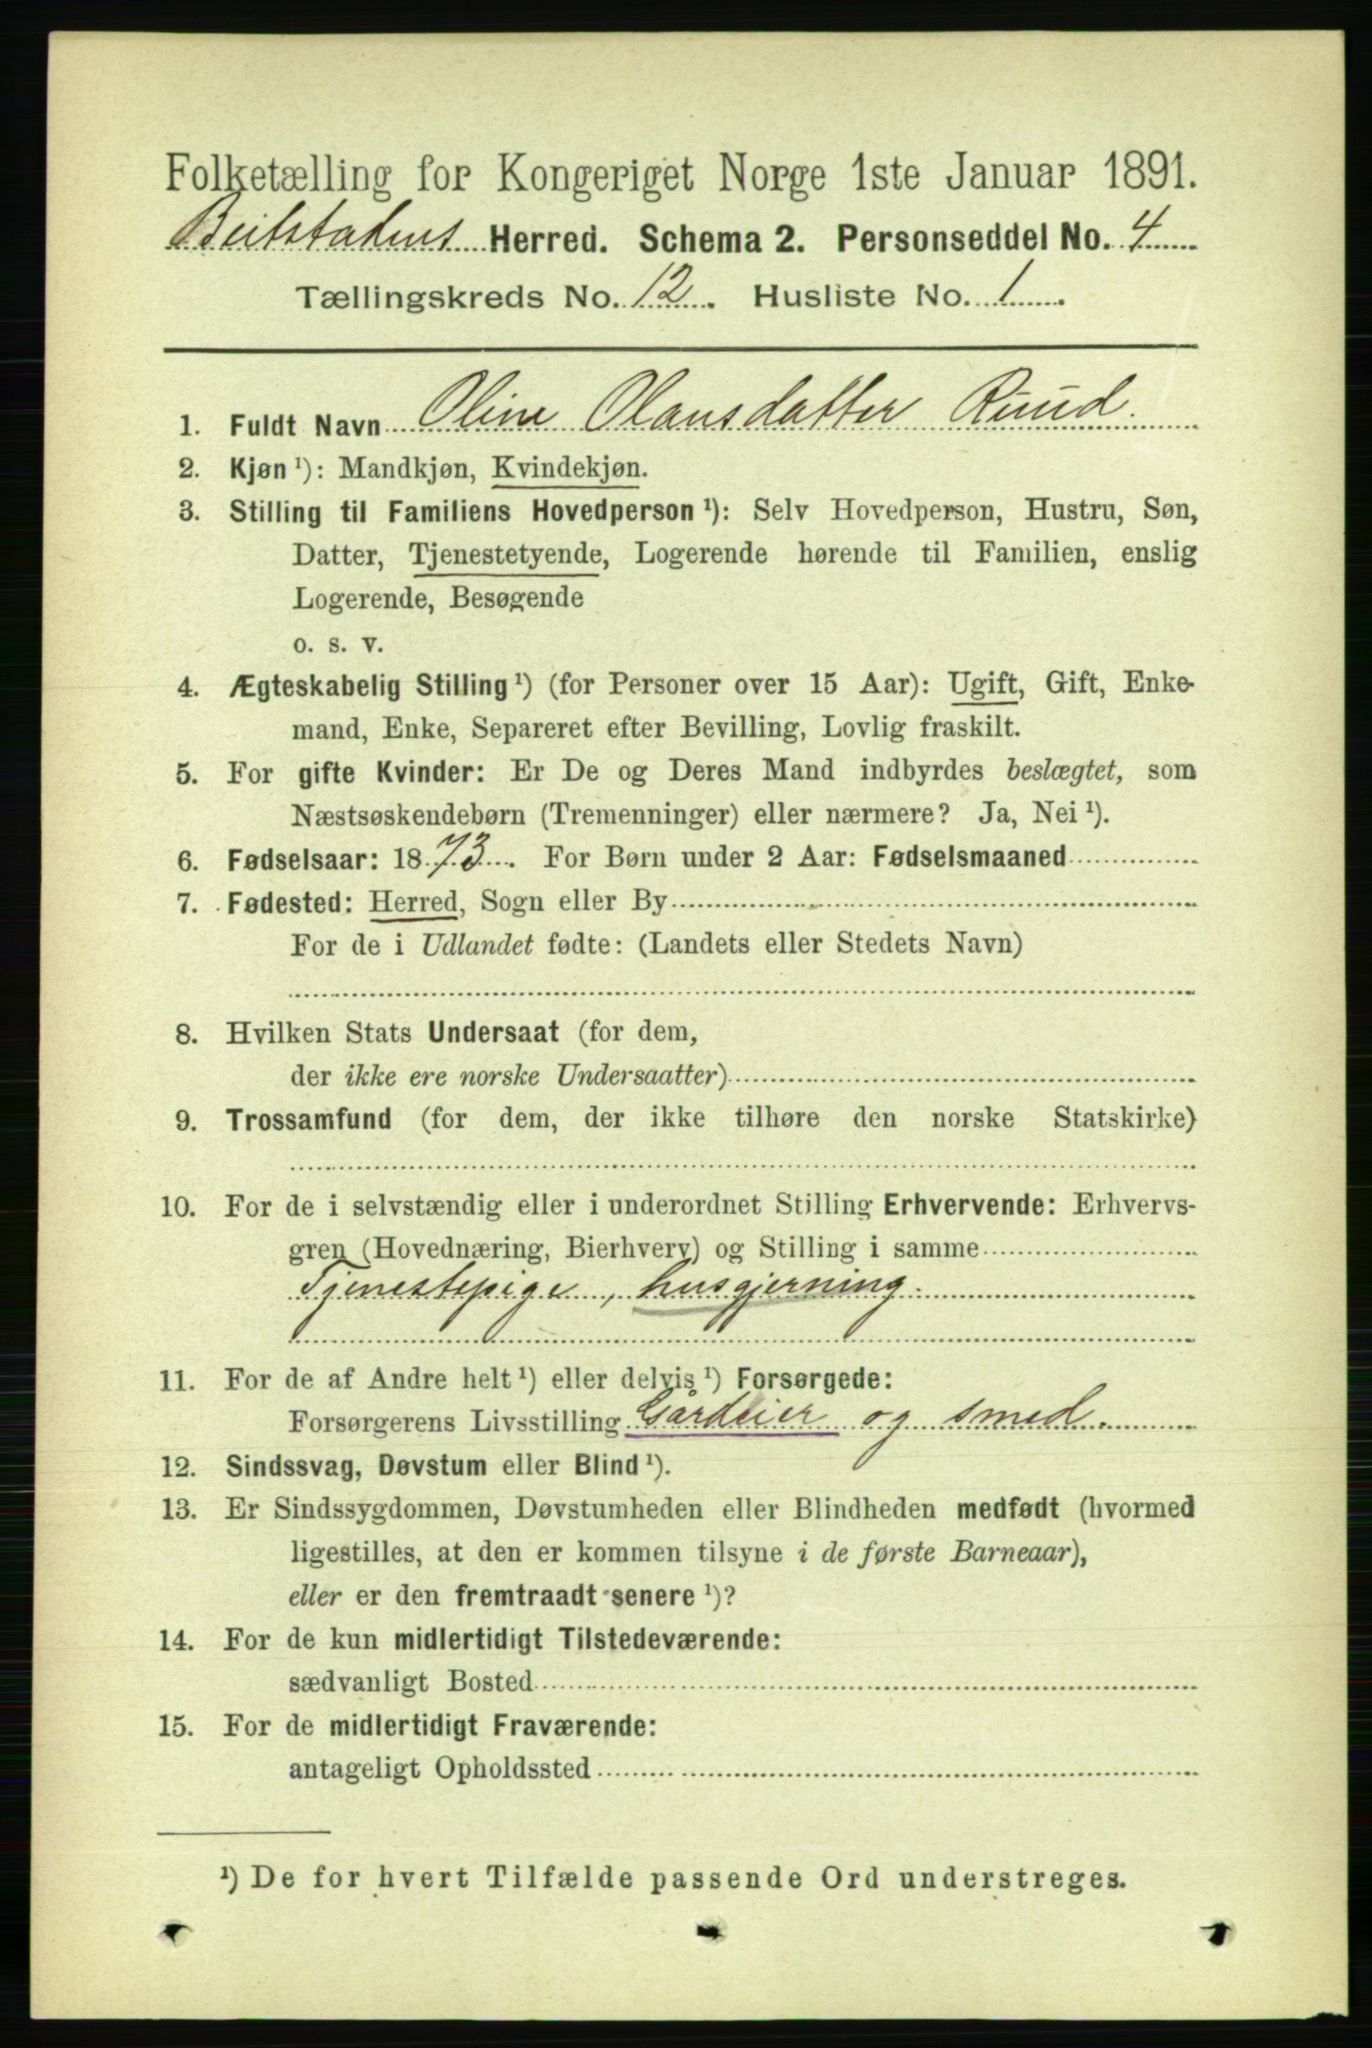 Folketælling for Kongeriget Norge 1ste Januar 1891.
Beitstadens Herred. Schema 2. Personseddel No. 4
Tællingskreds No. 12. Husliste No. 1.
1. Fuldt Navn Oline Olausdatter Ruud.
2. Kjøn ¹): Mandkjøn, Kvindekjøn.
3. Stilling til Familiens Hovedperson ¹): Selv Hovedperson, Hustru, Søn,
Datter, Tjenestetyende, Logerende hørende til Familien, enslig
Logerende, Besøgende
o. s. v.
4. Ægteskabelig Stilling ¹) (for Personer over 15 Aar): Ugift, Gift, Enke-
mand, Enke, Separeret efter Bevilling, Lovlig fraskilt.
5. For gifte Kvinder: Er De og Deres Mand indbyrdes beslægtet, som
Næstsøskendebørn (Tremenninger) eller nærmere? Ja, Nei ¹).
6. Fødselsaar: 1873. For Børn under 2 Aar: Fødselsmaaned
7. Fødested: Herred, Sogn eller By
For de i Udlandet fødte: (Landets eller Stedets Navn)
8. Hvilken Stats Undersaat (for dem,
der ikke ere norske Undersaatter)
9. Trossamfund (for dem, der ikke tilhøre den norske Statskirke)
10. For de i selvstændig eller i underordnet Stilling Erhvervende: Erhvervs-
gren (Hovednæring, Bierhverv) og Stilling i samme
Tjenestepige, husgjerning.
11. For de af Andre helt ¹) eller delvis ¹) Forsørgede:
Forsørgerens Livsstilling Gårdeier og smed.
12. Sindssvag, Døvstum eller Blind ¹).
13. Er Sindssygdommen, Døvstumheden eller Blindheden medfødt (hvormed
ligestilles, at den er kommen tilsyne i de første Barneaar),
eller er den fremtraadt senere ¹)?
14. For de kun midlertidigt Tilstedeværende:
sædvanligt Bosted
15. For de midlertidigt Fraværende:
antageligt Opholdssted
¹) De for hvert Tilfælde passende Ord understreges.